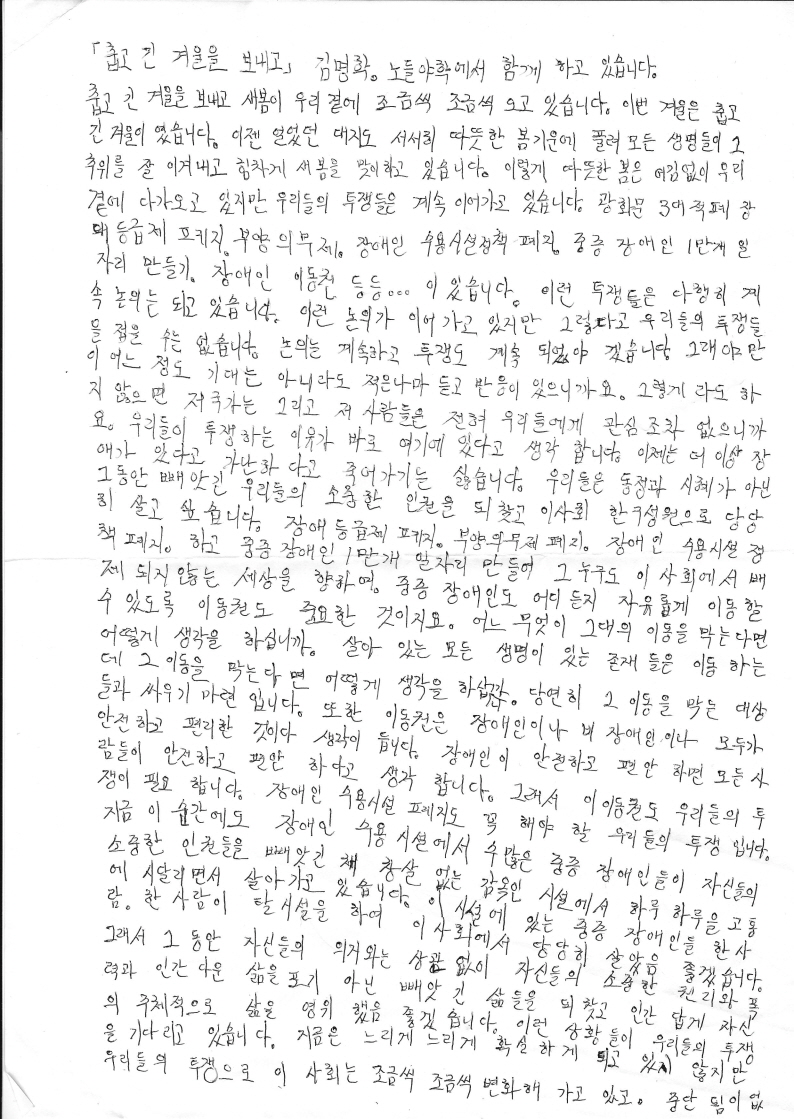 「춥고 긴 겨울을 보내고」 김명학。 노들야학에서 함께 하고 있습니다。
춥고 긴 겨울을 보내고 새봄이 우리 곁에 조금씩 조금씩 오고 있습니다。 이번 겨울은 춥고
긴 겨울이 였습니다。 이젠 얼었던 대지도 서서히 따뜻한 봄기운에 풀려 모든 생명들이 그
추위를 잘 이겨내고 힘차게 새봄을 맞이하고 있습니다。 이렇게 따뜻한 봄은 어김없이 우리
곁에 다가오고 있지만 우리들의 투쟁들은 계속 이어가고 있습니다。 광화문 3대적폐 장
애등급제 폐지, 부양의무제。 장애인 수용시설정책 폐지。 중증 장애인 1만개 일
자리 만들기。 장애인 이동권 등등... 이 있습니다。 이런 투쟁들은 다행히 계
속 논의는 되고 있습니다。 이런 논의가 이어 가고 있지만 그렇다고 우리들의 투쟁들
을 접을 수는 없습니다。 논의는 계속하고 투쟁도 계속 되었야 겠습니다。 그래야만
이 어느 정도 기대는 아니라도 적은나마 듣고 반응이 있으니까요。 그렇게 라도 하
지 않으면 저 국가는 그리고 저 사람들은 전혀 우리들에게 관심 조차 없으니까
요。 우리들이 투쟁하는 이유가 바로 여기에 있다고 생각 합니다。 이제는 더 이상 장
애가 있다고 가난하 다고 죽어가기는 싫습니다。 우리들은 동정과 시혜가 아닌
그동안 빼앗긴 우리들의 소중한 인권을 되찾고 이사회 한구성원으로 당당
히 살고 싶습니다。 장애등급제 폐지。 부양의무제 폐지。 장애인 수용시설 정
책 폐지。 하고 중증 장애인 1만개 일자리 만들어 그 누구도 이 사회에서 배
제 되지않는 세상을 향하여。 중증 장애인도 어디 든지 자유롭게 이동할
수 있도록 이동권도 중요한 것이지요。 어느 무엇이 그대의 이동을 막는다면
어떻게 생각을 하십니까。 살아 있는 모든 생명이 있는 존재 들은 이동 하는
데 그 이동을 막는다 면 어떻게 생각을 하십니까。 당연히 그 이동을 막는 대상
들과 싸우기 마련 입니다。 또한 이동권은 장애인이나 비 장애인 이나 모두가
안전하고 편리한 것이다 생각이 듭니다。 장애인이 안전하고 편안 하면 모든 사
람들이 안전하고 편안 하다고 생각 합니다。 그래서 이 이동권도 우리들의 투
쟁이 필요 합니다。 장애인 수용시설 폐지도 꼭 해야 할 우리들의 투쟁 입니다。
지금 이 순간에도 장애인 수용 시설에서 수많은 중증 장애인들이 자신들의
소중한 인권들을 빼앗긴 채 창살 없는 감옥인 시설에서 하루 하루를 고통
에 시달리면서 살아가고 있습니다。 이 시설에 있는 중증 장애인들 한사
람。 한 사람이 탈시설을 하여 이 사회에서 당당히 살았음 좋겠습니다。
그래서 그 동안 자신들의 의지와는 상관 없이 자신들의 소중한 권리와 폭
력과 인간 다운 삶을 포기 아닌 빼앗 긴 삶들을 되찾고 인간 답게 자신
의 주체적으로 삶을 영위 했음 좋겠 습니다。 이런 상황 들이 우리들의 투쟁
을 기다리고 있습니다。 지금은 느리게 느리게 확실 하게 되고 있지 않지만
우리들의 투쟁으로 이 사회는 조금씩 조금씩 변화해 가고 있고。 중단 됨이 없